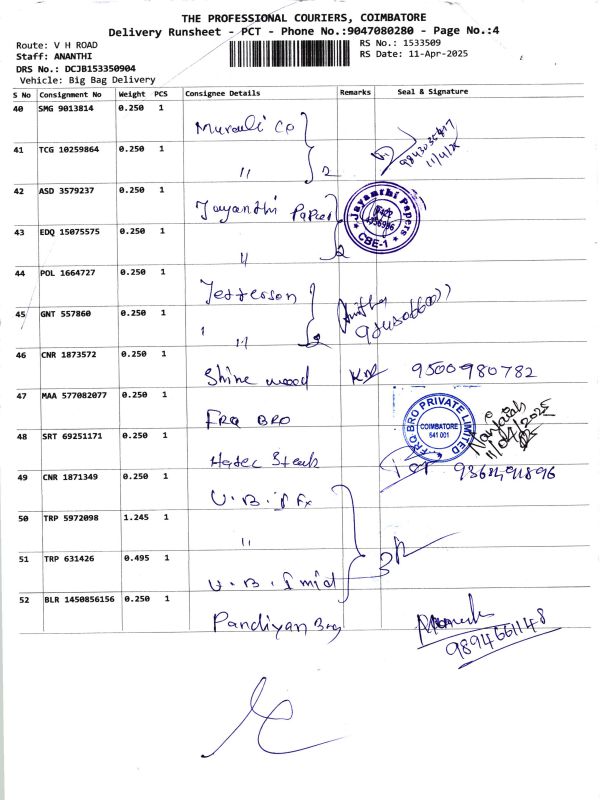 THE PROFESSIONAL COURIERS, COIMBATORE
Delivery Runsheet - PCT - Phone No.:9047080280 - Page No.:4
Route: V H ROAD
RS No.: 1533509
Staff: ANANTHI
RS Date: 11-Apr-2025
DRS No.: DCJB153350904
Vehicle: Big Bag Delivery
S No Consignment No Weight PCS Consignee Details Remarks Seal & Signature
40 SMG 9013814 0.250 1
Murali Co
41 TCG 10259864 0.250 1
" 2
11/4/25
42 ASD 3579237 0.250 1
Jayanthi Papers
Jayanthi Papers
CBE-1
43 EDQ 15075575 0.250 1
" 2
44 POL 1664727 0.250 1
Jefferson
45 GNT 557860 0.250 1
" 2
46 CNR 1873572 0.250 1
Shine wood 9500980782
47 MAA 577082077 0.250 1
FRQ BRO
FRQ BRO PRIVATE LIMITED
COIMBATORE
641 001
11/04/2025
48 SRT 69251171 0.250 1
49 CNR 1871349 0.250 1
U.B.I Fx
50 TRP 5972098 1.245 1
"
51 TRP 631426 0.495 1
U.B.I mid
52 BLR 1450856156 0.250 1
Pandiyan Bro
9894661148